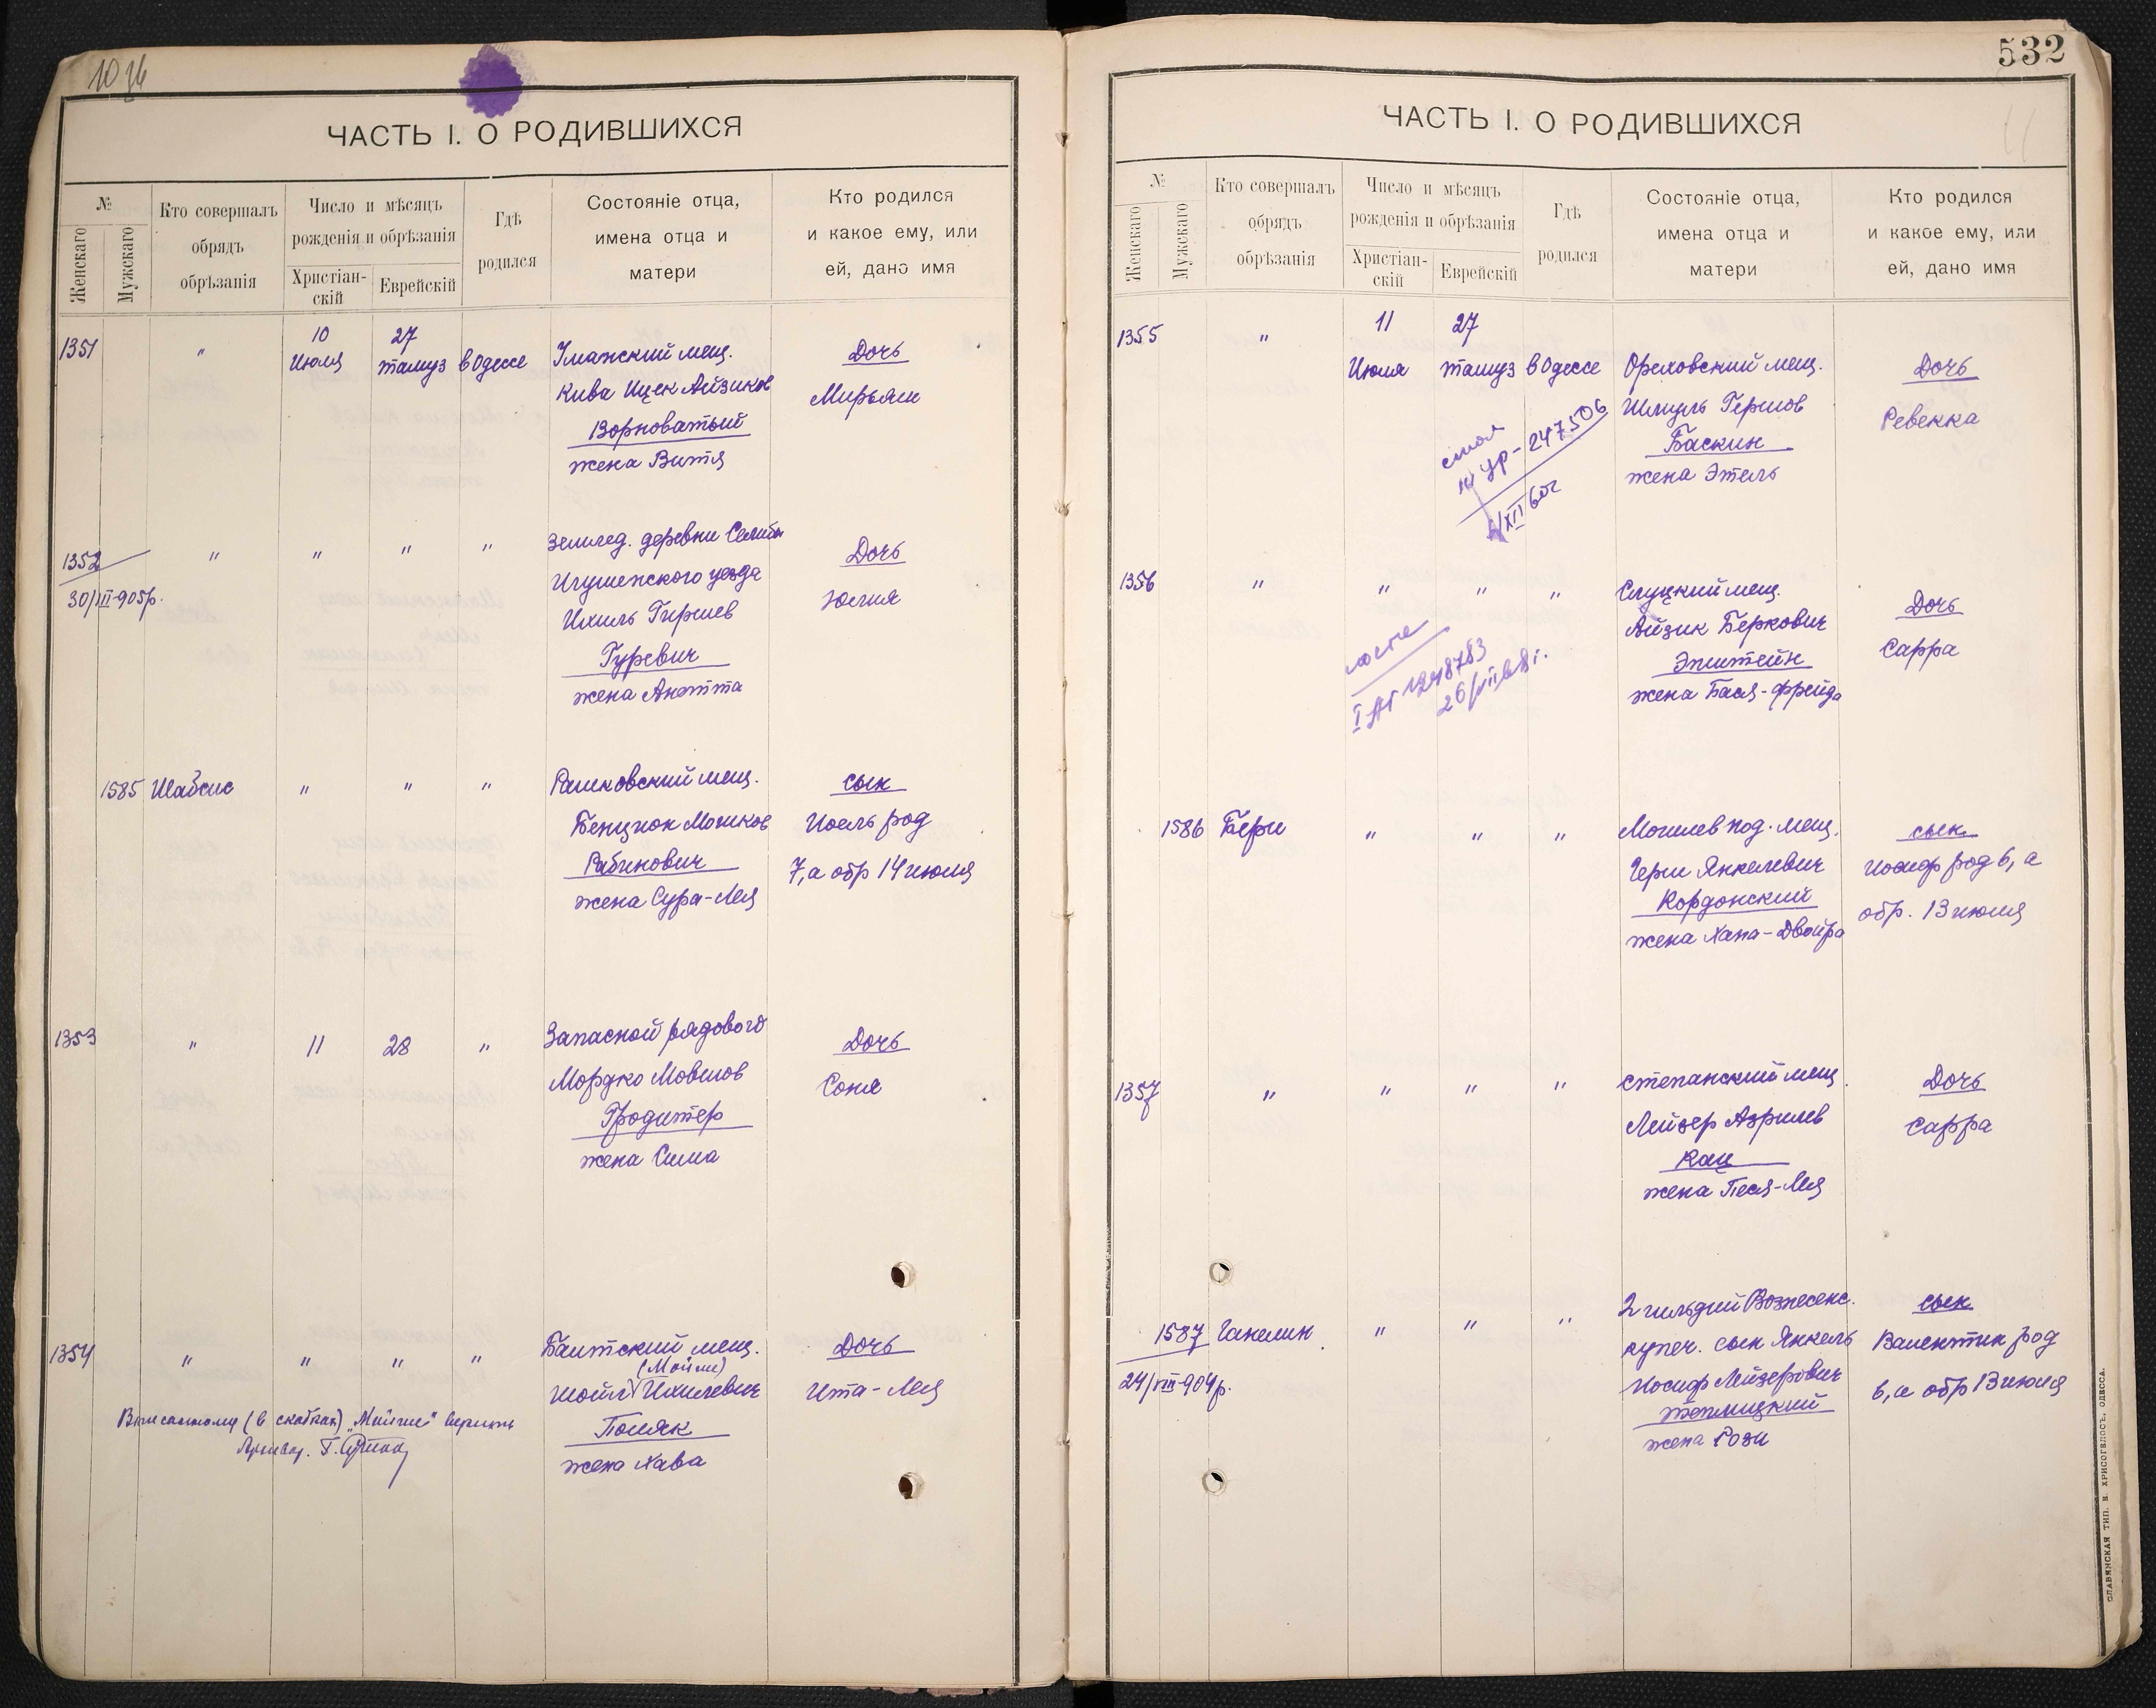 532
ЧАСТЬ I. О РОДИВШИХСЯ
№
Женскаго
Мужскаго
Кто совершалъ
обрядъ
обрѣзанія
Число и мѣсяцъ
рожденія и обрѣзанія
Христіан-
скій
Еврейскій
Гдѣ
родился
Состояніе отца,
имена отца и
матери
Кто родился
и какое ему, или
ей, дано имя
1351
"
10
Июля
27
тамуз
в Одессе
Уманский мещ.
Кива Ицек Айзиков
Ворноватый
жена Витя
Дочь
Мирьям
1352
30/III-905 р.
"
"
"
"
Землед. деревни Селиба
Игуменского уезда
Ихиль Гиршев
Гуревич
жена Анетта
Дочь
Юлия
1585
Шабсис
"
"
"
Рашковский мещ.
Бенцион Мошков
Рабинович
жена Сура-Лея
сын
Иоель род
7, а обр 14 июля
1353
"
11
28
"
Запасной рядового
Мордко Мовшов
Гродштер
жена Сима
Дочь
Соня
1354
"
"
"
"
Балтский мещ.
(Мойше)
Шойл Ихилевич
Поляк
жена Хава
Дочь
Ита-Лея
Вписанному (в скобках) „Мойше" верить
ЧАСТЬ I. О РОДИВШИХСЯ
№
Женскаго
Мужскаго
Кто совершалъ
обрядъ
обрѣзанія
Число и мѣсяцъ
рожденія и обрѣзанія
Христіан-
скій
Еврейскій
Гдѣ
родился
Состояніе отца,
имена отца и
матери
Кто родился
и какое ему, или
ей, дано имя
1355
"
11
Июля
27
тамуз
в Одессе
Ореховский мещ.
Шмуль Гершов
Баскин
жена Этель
Дочь
Ревекка
247506
1356
"
"
"
"
Слуцкий мещ.
Айзик Беркович
Эпштейн
жена Бася-Фрейда
Дочь
Сарра
1586
Бери
"
"
"
Могилев под. мещ.
Герш Янкелевич
Кордонский
жена Хана-Двойра
сын
Иосиф род 6, а
обр. 13 июля
1357
"
"
"
"
Степанский мещ.
Лейзер Азрилев
Кац
жена Песя-Лея
Дочь
Сарра
1587
24/VIII-904 р.
Ганелин
"
"
"
2 гильдии Вознесенс.
купеч. сын Янкель
Иосиф Лейзерович
Теплицкий
жена Рози
сын
Валентин род
6, а обр 13 июля
СЛАВЯНСКАЯ ТИП. Н. ХРИСОГЕЛОСЪ, ОДЕССА.